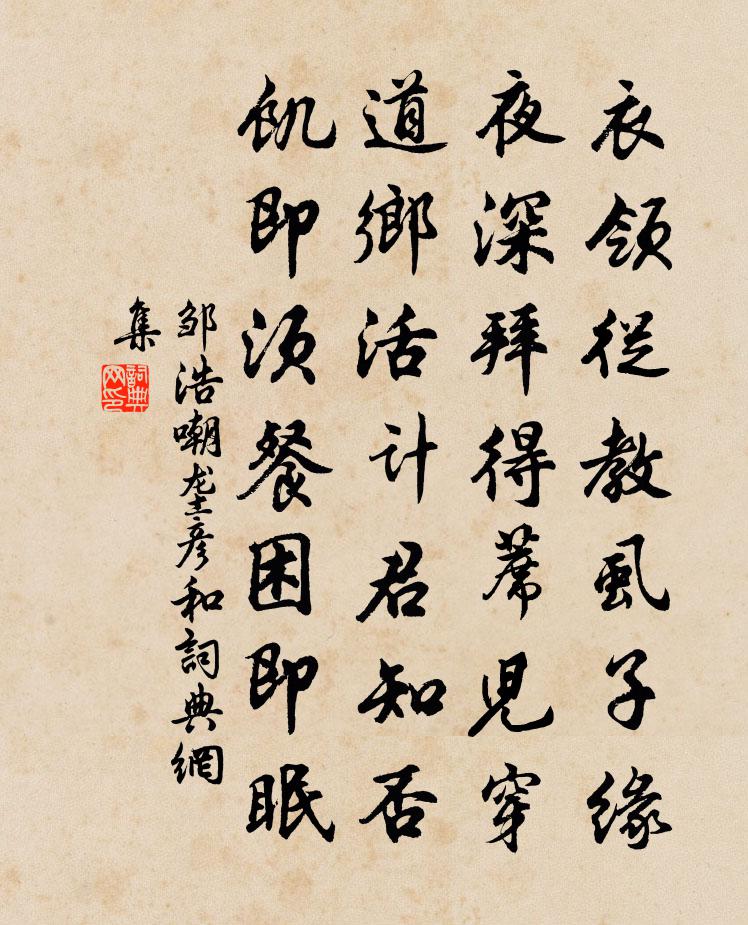 衣領從教虱子緣
夜深拜得蓆兒穿
道鄉活計君知否
飢即須餐困即眠
邹浩嘲龚彦和詞典網
集
詞典
网印